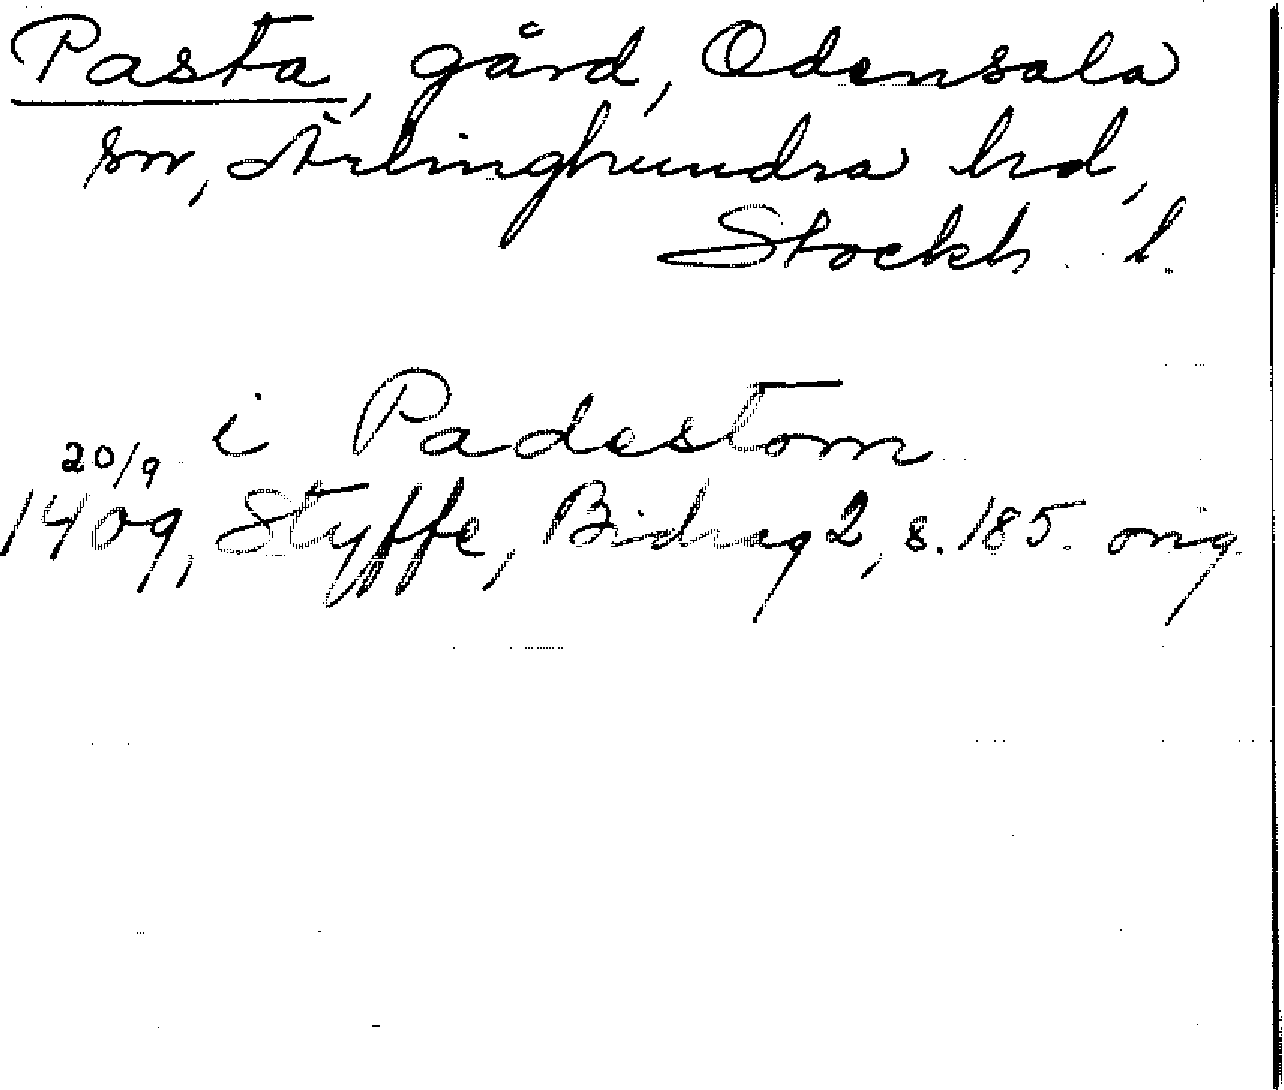 Pasta, gård, Odensala
sn, Ärlinghundra hd,
Stockh. l.
i Padestom
20/9
1409, Styffe, Bidrag 2, s. 185. orig.